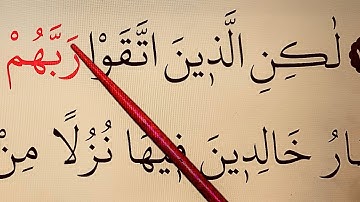 لٰكِنِ الَّذٖينَ اتَّقَوْا رَبَّهُمْ
ارُ خَالِدٖينَ فٖيهَا نُزُلًا مِنْ